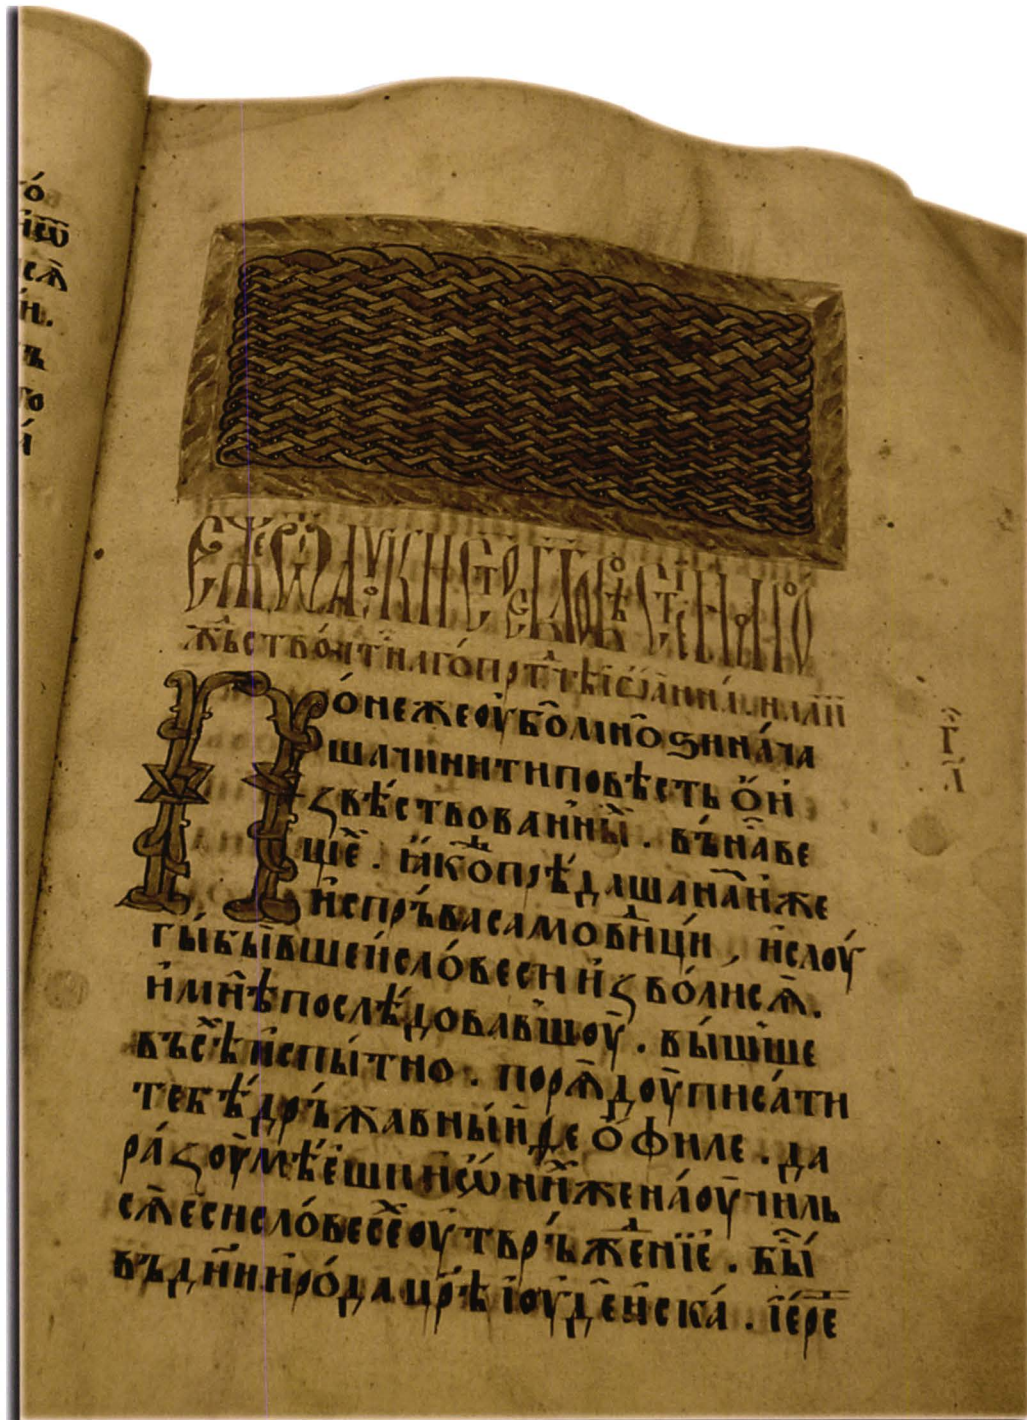 ѿ лоуки ст҃ое бл҃говѣствованїе
жⷭ҇ство чтⷭ҇наго прⷣтчѣ іѡанна
Понеже оубѡ мнѡѕи нача
ша чинити повѣсть ѡ и
звѣствованныⷯ . въ наⷭ҇ ве
щеⷯ . ꙗкоⷤ прѣдаша намъ иже
испръва самовидци , и слоу
гы бывшеи словеси изволисѧ .
и мнѣ послѣдовавшоу . выше
въсѣⷯ испытно . порѧдоу писати
тебѣ дръжавныи ѳеѡфиле . да
разоумѣеши ѡ ниⷯже наоучилъ
сѧ еси словесеⷯ оутвръженїе . быⷭ҇
въ дни ирода цр҃ѣ іоудейска . іере